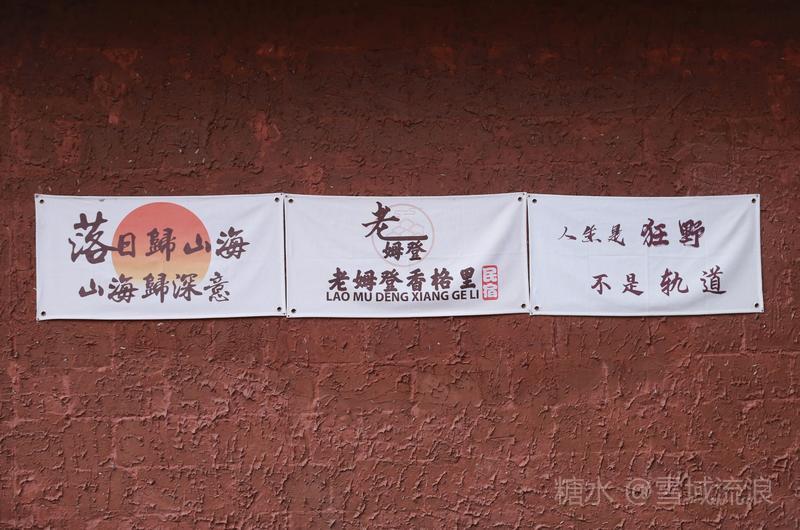 落日歸山海
山海歸深意
老
姆登
老姆登香格里
民宿
LAO MU DENG XIANG GE LI
人生是 狂野
不是 轨道
糖水 @雪域流浪